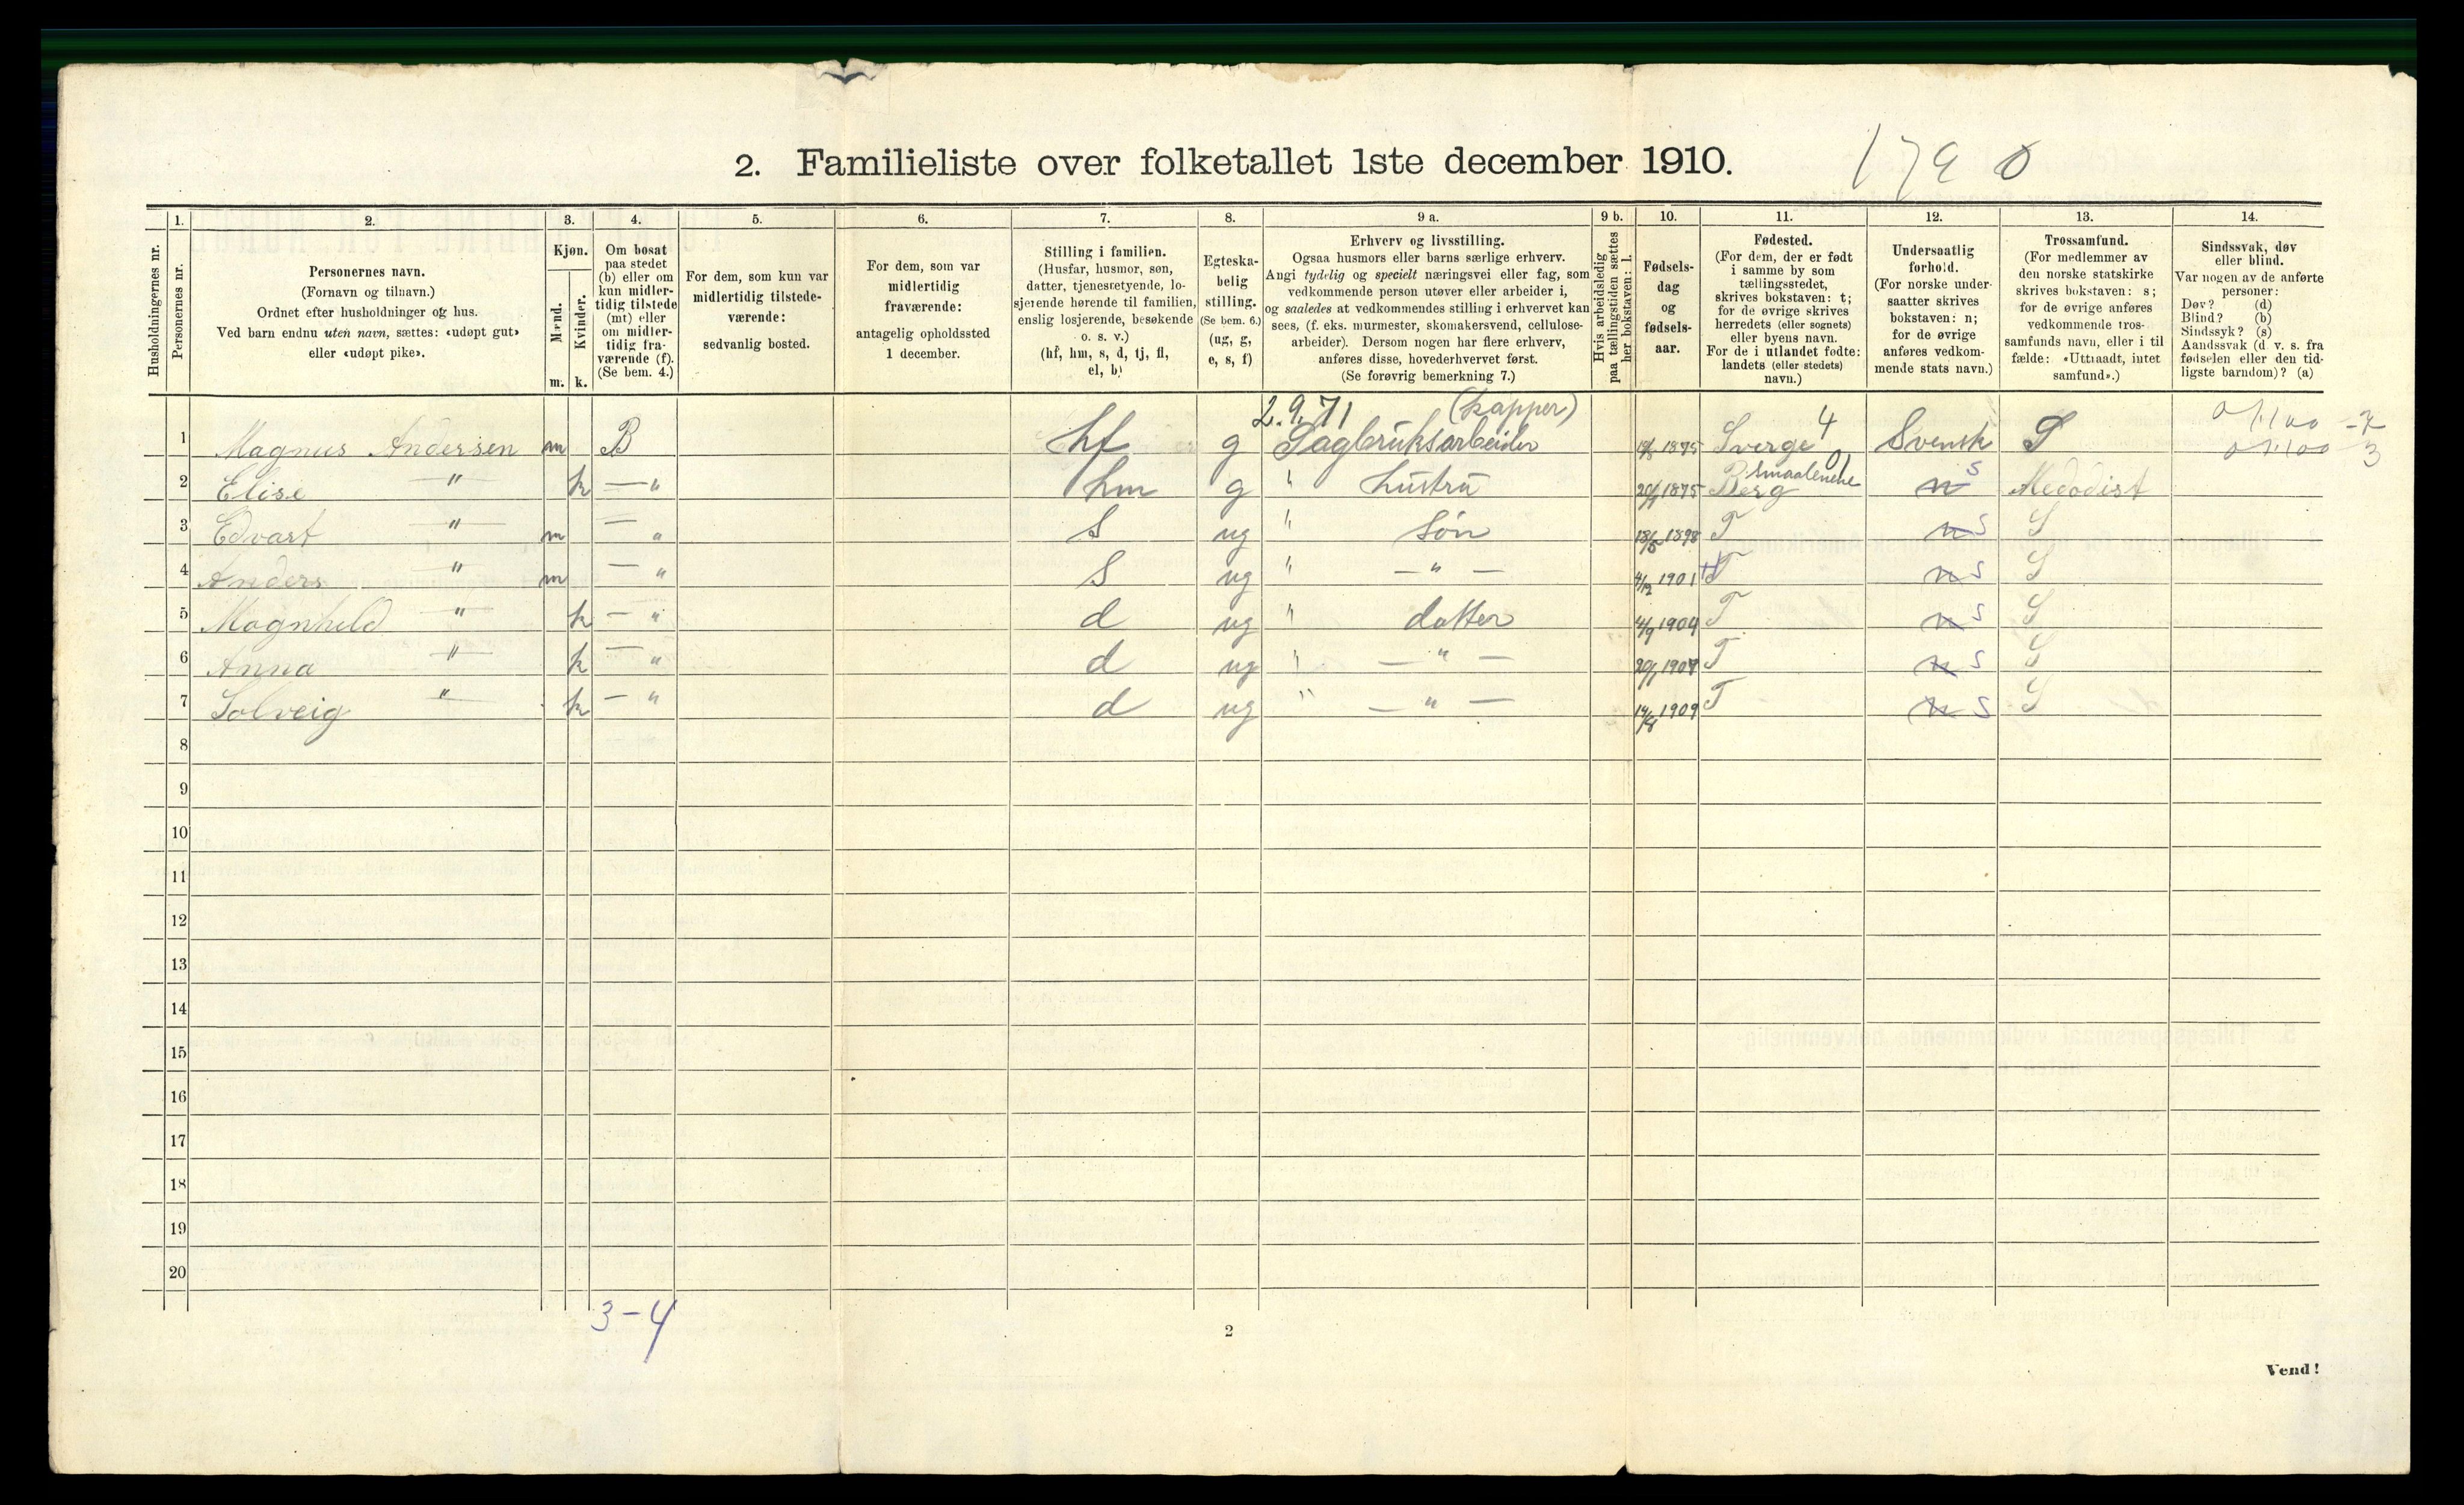 2. Familieliste over folketallet 1ste december 1910.
1. 2. 3. 4. 5. 6. 7. 8. 9 a. 9 b. 10. 11. 12. 13. 14.
Husholdningernes nr.
Personernes nr.
Personernes navn.
(Fornavn og tilnavn.)
Ordnet efter husholdninger og hus.
Ved barn endnu uten navn, sættes: «udøpt gut»
eller «udøpt pike».
Kjøn.
Mænd.
Kvinder.
m. k.
Om bosat
paa stedet
(b) eller om
kun midler-
tidig tilstede
(mt) eller
om midler-
tidig fra-
værende (f).
(Se bem. 4.)
For dem, som kun var
midlertidig tilstede-
værende:
sedvanlig bosted.
For dem, som var
midlertidig
fraværende:
antagelig opholdssted
1 december.
Stilling i familien.
(Husfar, husmor, søn,
datter, tjenestetyende, lo-
sjerende hørende til familien,
enslig losjerende, besøkende
o. s. v.)
(hf, hm, s, d, tj, fl,
el, b)
Egteska-
belig
stilling.
(Se bem. 6.)
(ug, g,
e, s, f)
Erhverv og livsstilling.
Ogsaa husmors eller barns særlige erhverv.
Angi tydelig og specielt næringsvei eller fag, som
vedkommende person utøver eller arbeider i,
og saaledes at vedkommendes stilling i erhvervet kan
sees, (f. eks. murmester, skomakersvend, cellulose-
arbeider). Dersom nogen har flere erhverv,
anføres disse, hovederhvervet først.
(Se forøvrig bemerkning 7.)
Hvis arbeidsledig
paa tællingstiden sættes
her bokstaven: l.
Fødsels-
dag
og
fødsels-
aar.
Fødested.
(For dem, der er født
i samme by som
tællingsstedet,
skrives bokstaven: t;
for de øvrige skrives
herredets (eller sognets)
eller byens navn.
For de i utlandet fødte:
landets (eller stedets)
navn.)
Undersaatlig
forhold.
(For norske under-
saatter skrives
bokstaven: n;
for de øvrige
anføres vedkom-
mende stats navn.)
Trossamfund.
(For medlemmer av
den norske statskirke
skrives bokstaven: s;
for de øvrige anføres
vedkommende tros-
samfunds navn, eller i til
fælde: «Uttraadt, intet
samfund».)
Sindssvak, døv
eller blind.
Var nogen av de anførte
personer:
Døv? (d)
Blind? (b)
Sindssyk? (s)
Aandssvak (d. v. s. fra
fødselen eller den tid-
ligste barndom)? (a)
2.9.71 (kapper) 4
1 Magnus Andersen m B hf g Sagbruksarbeider 1875 Sverge Svensk S
Smaalenene
2 Elise " k — " hm g " hustru 1875 Berg n s Medodist
3 Edvart " m — " S ug " Søn 18/5 1898 T n s S
4 Anders " m — " S ug " — " — 4/12 1901 T n s S
5 Magnhild " k — " d ug " datter 4/9 1904 T n s S
6 Anna " k — " d ug " — " — 20/1 1907 T n s S
7 Solveig " k — " d ug " — " — 14/8 1909 T n s S
8
9
10
11
12
13
14
15
16
17
18
19
20
3-4
2
Vend!